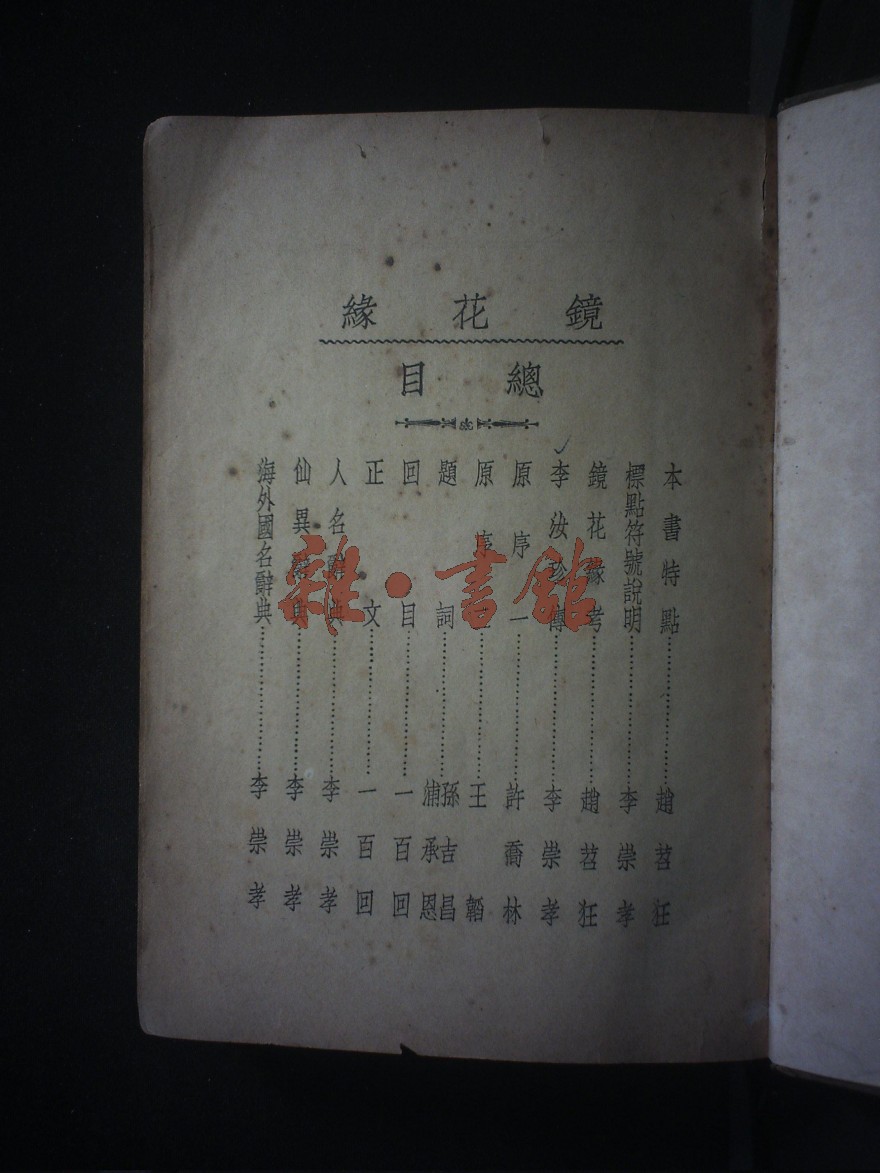 鏡花緣
總目
本書特點……趙苕狂
標點符號說明……李崇孝
鏡花緣考……趙苕狂
李汝珍傳……李崇孝
原序一……許喬林
原序二……王韜
題詞……孫吉昌 浦承恩
回目……一百回
正文……一百回
人名辭典……李崇孝
仙異辭典……李崇孝
海外國名辭典……李崇孝
雜·書館